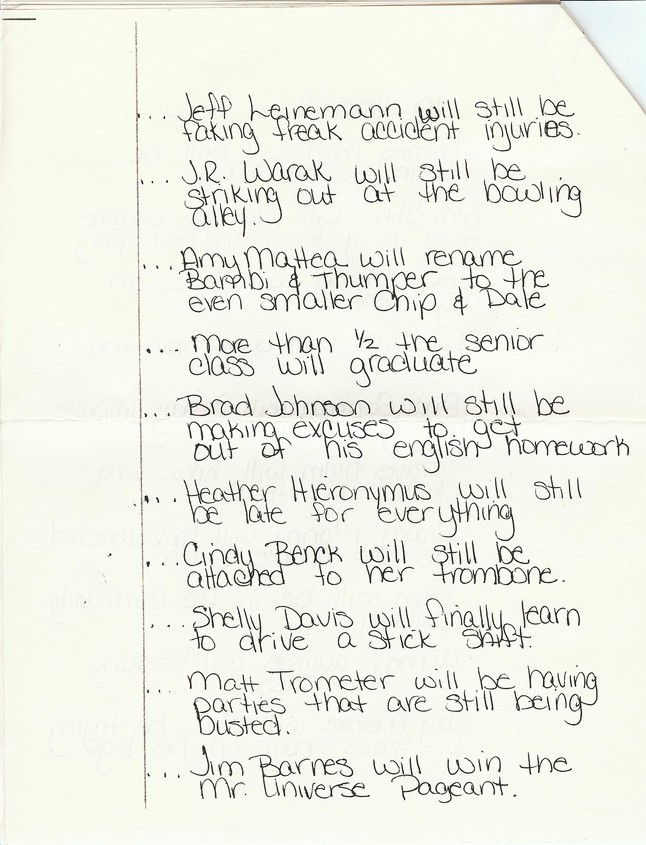 ... Jeff Leinemann will still be
faking freak accident injuries.
... J.R. Warak will still be
striking out at the bowling
alley.
... Amy Mattea will rename
Bambi & Thumper to the
even smaller Chip & Dale
... More than 1/2 the senior
class will graduate
... Brad Johnson will still be
making excuses to get
out of his english homework
... Heather Hieronymus will still
be late for everything
... Cindy Benck will still be
attached to her trombone.
... Shelly Davis will finally learn
to drive a stick shift.
... Matt Trometer will be having
parties that are still being
busted.
... Jim Barnes will win the
Mr. Universe Pageant.